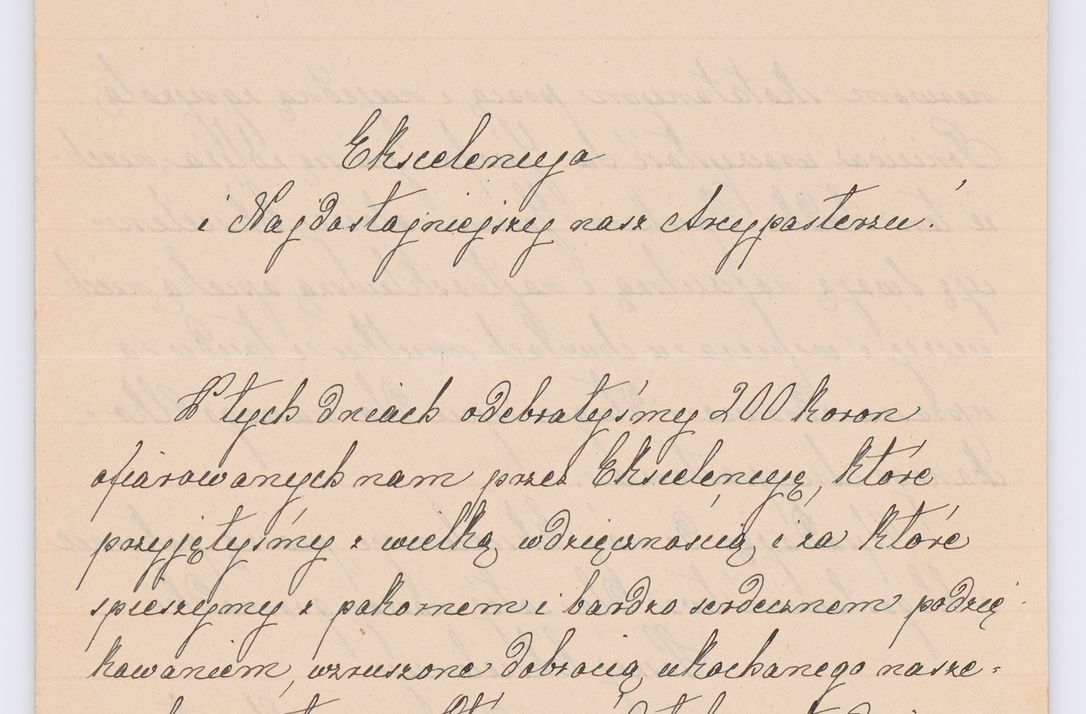 Ekscelencyo
i Najdostojniejszy nasz Arcypasterzu!
W tych dniach odebrałyśmy 200 koron
ofiarowanych nam przez Ekscelencyę, które
przyjęłyśmy z wielką wdzięcznością i za które
spieszymy z pokornem i bardzo serdecznem podzię-
kowaniem, wzruszone dobrocią ukochanego nasze-